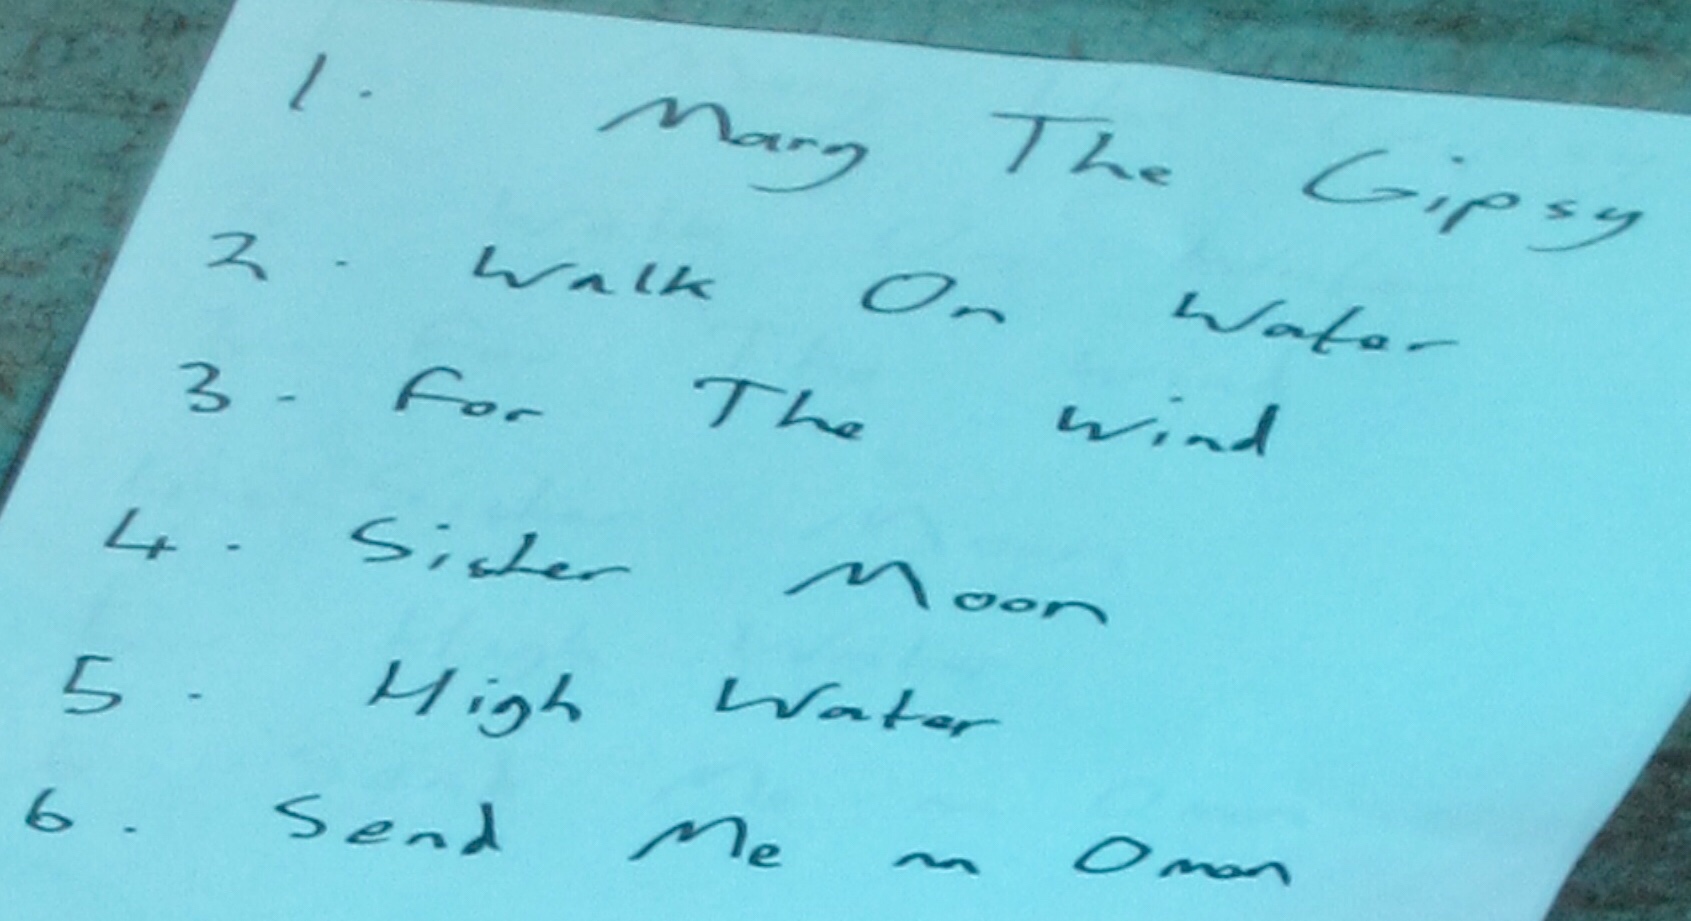 1. Mary The Gipsy
2. Walk On Water
3. For The Wind
4. Sister Moon
5. High Water
6. Send Me an Oman